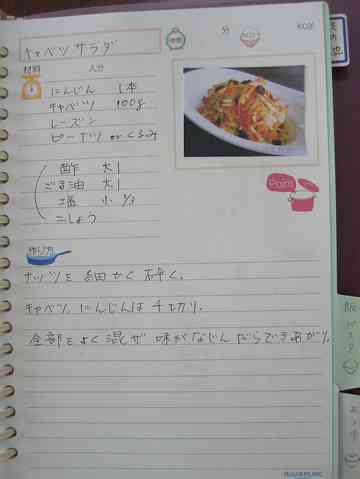 キャベツサラダ
分
kcal
材料
人分
にんじん 1本
キャベツ 100g
レーズン
ピーナツ or くるみ
酢 大1
ごま油 大1
塩 小 1/3
こしょう
Point
作り方
ナッツを細かく砕く。
キャベツ、にんじんは千切り。
全部をよく混ぜ 味がなじんだらできあがり。